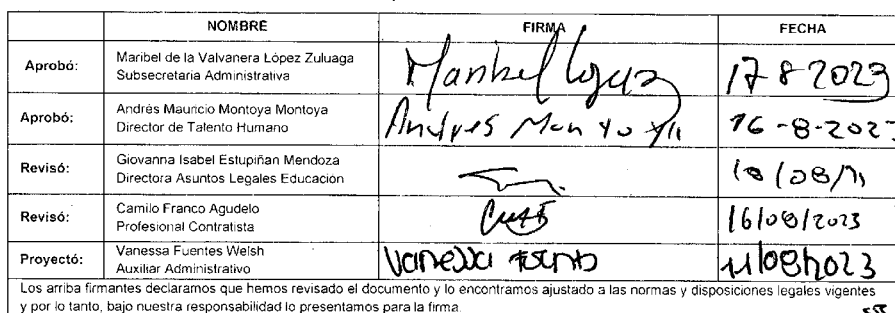 NOMBRE FIRMA FECHA
Aprobó: Maribel de la Valvanera López Zuluaga
Subsecretaria Administrativa
Maribel López 17 8 2023
Aprobó: Andrés Mauricio Montoya Montoya
Director de Talento Humano
Andres Montoya 16-8-2023
Revisó: Giovanna Isabel Estupiñan Mendoza
Directora Asuntos Legales Educación
Revisó: Camilo Franco Agudelo
Profesional Contratista
16/08/2023
Proyectó: Vanessa Fuentes Welsh
Auxiliar Administrativo
Vanessa 11/08/2023
Los arriba firmantes declaramos que hemos revisado el documento y lo encontramos ajustado a las normas y disposiciones legales vigentes
y por lo tanto, bajo nuestra responsabilidad lo presentamos para la firma.